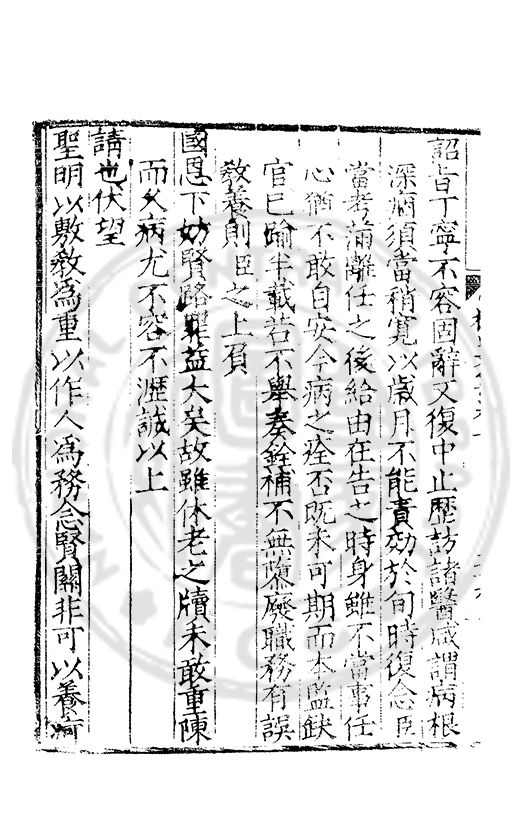 詔旨丁寧不容固辭又復中止歷訪諸醫咸謂病根
深痼須當稍寬以歲月不能責効於旬時復念臣
當考滿離任之後給由在告之時身雖不當事任
心猶不敢自安今病之痊否既未可期而本監缺
官已踰半載若不舉奏銓補不無隳廢職務有誤
敎養則臣之上負
國恩下妨賢路罪益大矣故雖休老之牘未敢重陳
而久病尤不容不瀝誠以上
請也伏望
聖明以敷敎為重以作人為務念賢關非可以養痾